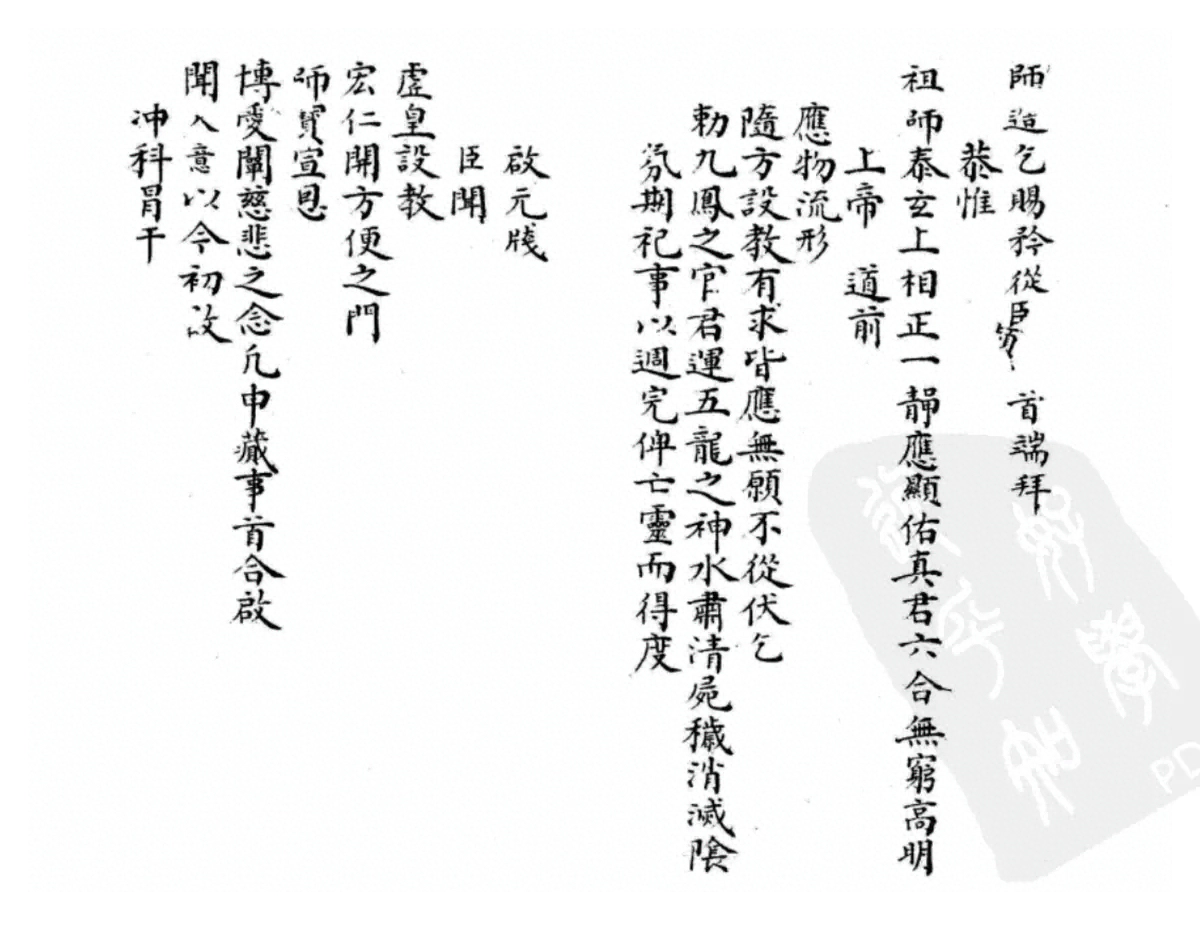 師造乞賜矜從臣 首端拜
恭惟
祖師泰玄上相正一靜應顯佑真君六合無窮高明
上帝 道前
應物流形
隨方設教有求皆應無願不從伏乞
勅九鳳之官君運五龍之神水肅清屍穢消滅陰
氛期祀事以週完俾亡靈而得度
啟元牋
臣聞
虛皇設教
宏仁開方便之門
師寶宣恩
博愛闡慈悲之念凢申蕆事首合啟
聞入意以今初啟
冲科冒干
PD